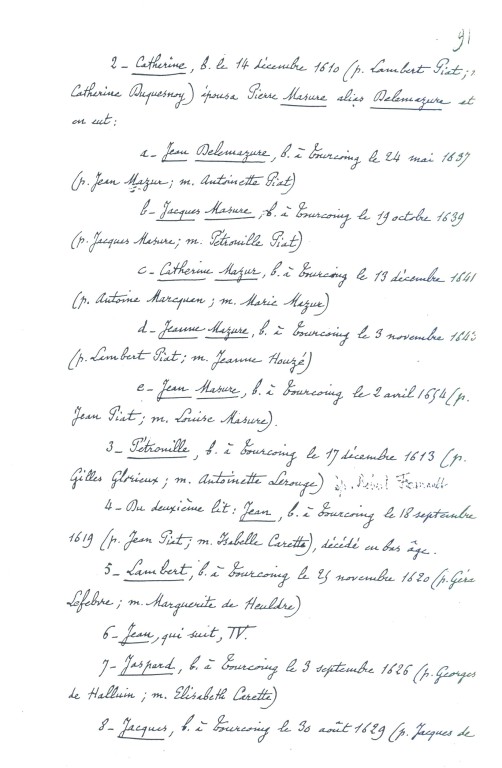 91
2 – Catherine, b. le 14 décembre 1610 (p. Lambert Piat ;
Catherine Duquesnoy) épousa Pierre Masure alias Delemazure et
en eut :
a – Jean Delemazure, b. à Tourcoing le 24 mai 1637
(p. Jean Mazur ; m. Antoinette Piat)
b – Jacques Masure, b. à Tourcoing le 19 octobre 1639
(p. Jacques Masure ; m. Pétronille Piat)
c – Catherine Mazur, b. à Tourcoing le 13 décembre 1641
(p. Antoine Marcquan ; m. Marie Mazur)
d – Jeanne Mazure, b. à Tourcoing le 3 novembre 164
(p. Lambert Piat ; m. Jeanne Houzé)
e – Jean Masure, b. à Tourcoing le 2 avril 1654 (p.
Jean Piat ; m. Louise Masure).
3 – Pétronille, b. à Tourcoing le 17 décembre 1613 (p.
Gilles Glorieux ; m. Antoinette Lerouge)
4 – Du deuxième lit : Jean, b. à Tourcoing le 18 septembre
1619 (p. Jean Piat ; m. Isabelle Carette), décédé en bas âge.
5 – Lambert, b. à Tourcoing le 25 novembre 1620 (p.
Lefebvre ; m. Marguerite de Heuldre)
6 – Jean, qui suit, IV.
7 – Jaspard, b. à Tourcoing le 3 septembre 1626 (p. Georges
de Halluin ; m. Elisabeth Carette)
8 – Jacques, b. à Tourcoing le 30 août 1629 (p. Jacques de